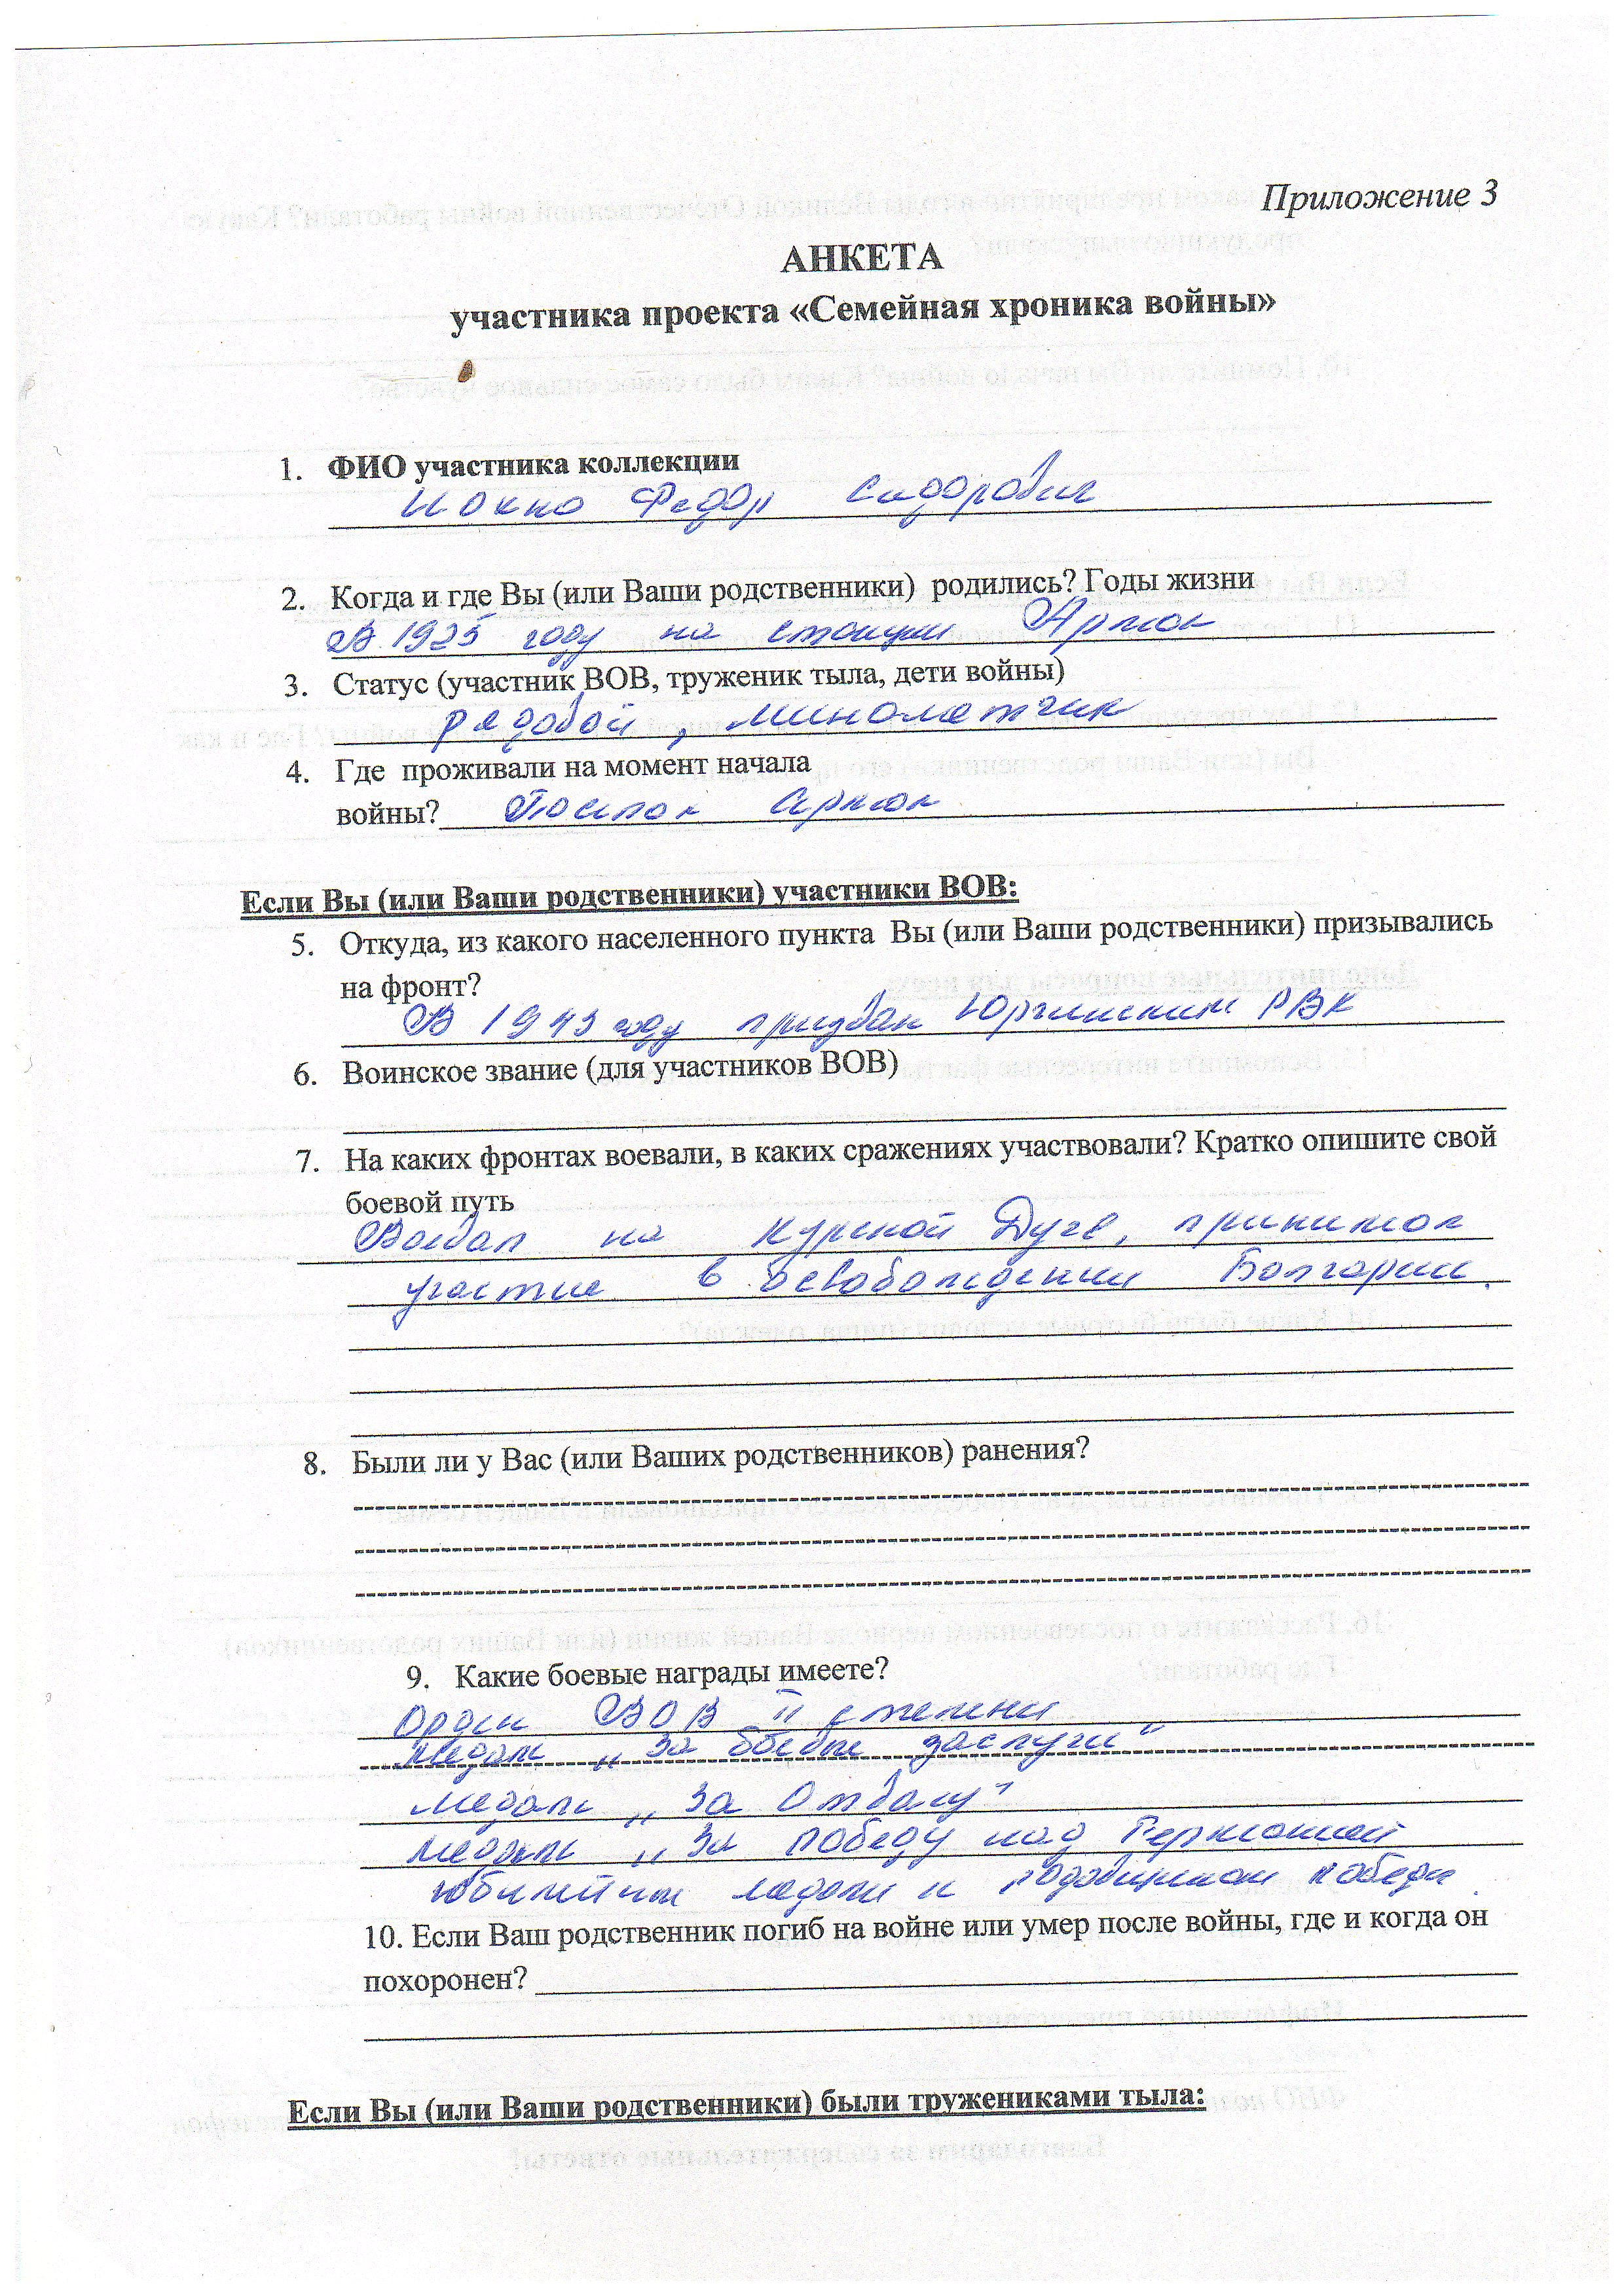 Приложение 3
АНКЕТА
участника проекта «Семейная хроника войны»
1. ФИО участника коллекции
Федор Сидорович
2. Когда и где Вы (или Ваши родственники) родились? Годы жизни
В 1925 году на станции Арлюк
3. Статус (участник ВОВ, труженик тыла, дети войны)
рядовой, минометчик
4. Где проживали на момент начала
войны? Поселок Арлюк
Если Вы (или Ваши родственники) участники ВОВ:
5. Откуда, из какого населенного пункта Вы (или Ваши родственники) призывались
на фронт?
В 1943 году призван Юргинским РВК
6. Воинское звание (для участников ВОВ)
7. На каких фронтах воевали, в каких сражениях участвовали? Кратко опишите свой
боевой путь
Воевал на Курской Дуге, принимал
участие в освобождении Болгарии.
8. Были ли у Вас (или Ваших родственников) ранения?
9. Какие боевые награды имеете?
Орден ВОВ II степени
медаль „За боевые заслуги"
медаль „За Отвагу"
медаль „За победу над Германией
юбилейные медали к годовщинам победы.
10. Если Ваш родственник погиб на войне или умер после войны, где и когда он
похоронен?
Если Вы (или Ваши родственники) были тружениками тыла: